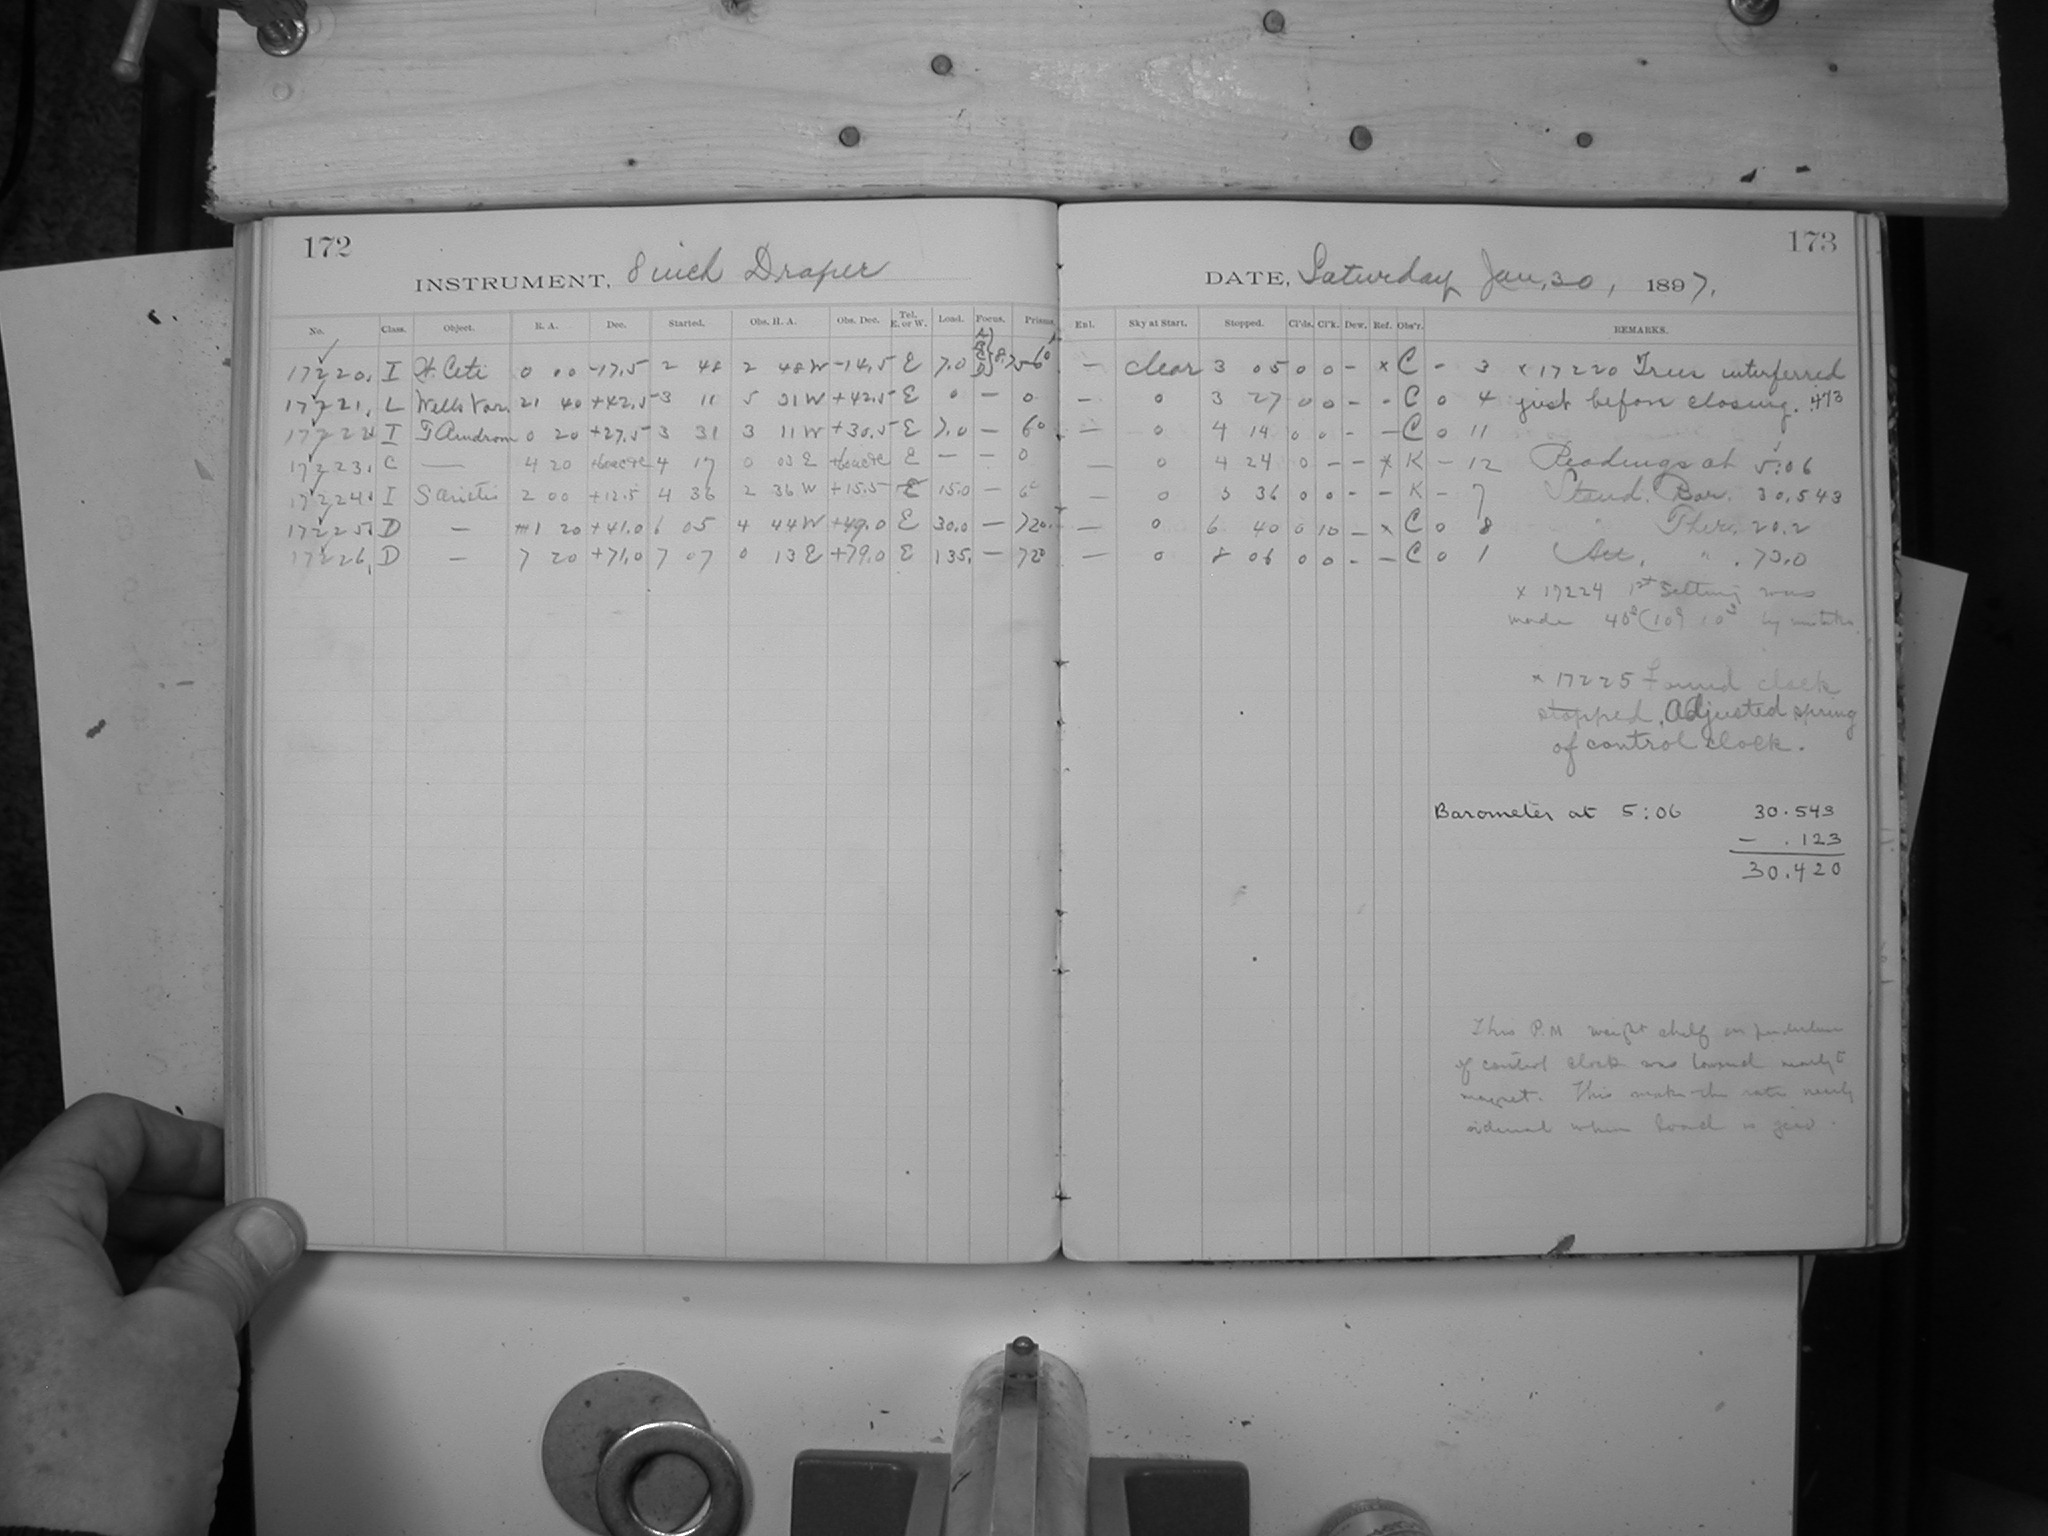 172
INSTRUMENT, 8 inch Draper
No. Class. Object. R. A. Dec. Started. Obs. H. A. Obs. Dec. Tel. E. or W. Load. Focus. Prisms
17220. I W. Ceti 0 00 -17.5 2 48 2 48 W -14.5 E 7.0 8.75 6°
17221. L Wells Var. 21 40 +42.5 3 11 5 31 W +42.5 E 0 — 0
17222 I T Androm 0 20 +27.5 3 31 3 11 W +30.5 E 7.0 — 6°
17223. C — 4 20 4 17 0 03 E E — — 0
17224. I S Arietis 2 00 +12.5 4 36 2 36 W +15.5 E 15.0 — 6°
17225. D — 1 20 +41.0 6 05 4 44 W +49.0 E 30.0 — 720.
17226. D — 7 20 +71.0 7 07 0 13 E +79.0 E 135. — 720
173
DATE, Saturday Jan. 30, 1897.
Enl. Sky at Start. Stopped. Cl'ds. Cl'k. Dew. Ref. Obs'r. REMARKS.
— clear 3 05 0 0 - x C - 3 x 17220 Trees interferred
— 0 3 27 0 0 - - C 0 4 just before closing. .473
— 0 4 14 0 0 - — C 0 11
— 0 4 24 0 - - x K - 12 Readings at 5:06
— 0 5 36 0 0 - - K - 7 Stand. Bar. 30.543
— 0 6 40 0 10 — x C 0 8 Ther. 20.2
— 0 8 06 0 0 - — C 0 1 Att. " . 73.0
x 17224 1st Setting was
made by mistake.
x 17225 Found clock
stopped. Adjusted spring
of control clock.
Barometer at 5:06 30.543
— .123
30.420
This P.M weight shelf on pendulum
of control clock was lowered nearly to
magnet. This makes the rate nearly
sidereal when load is zero.